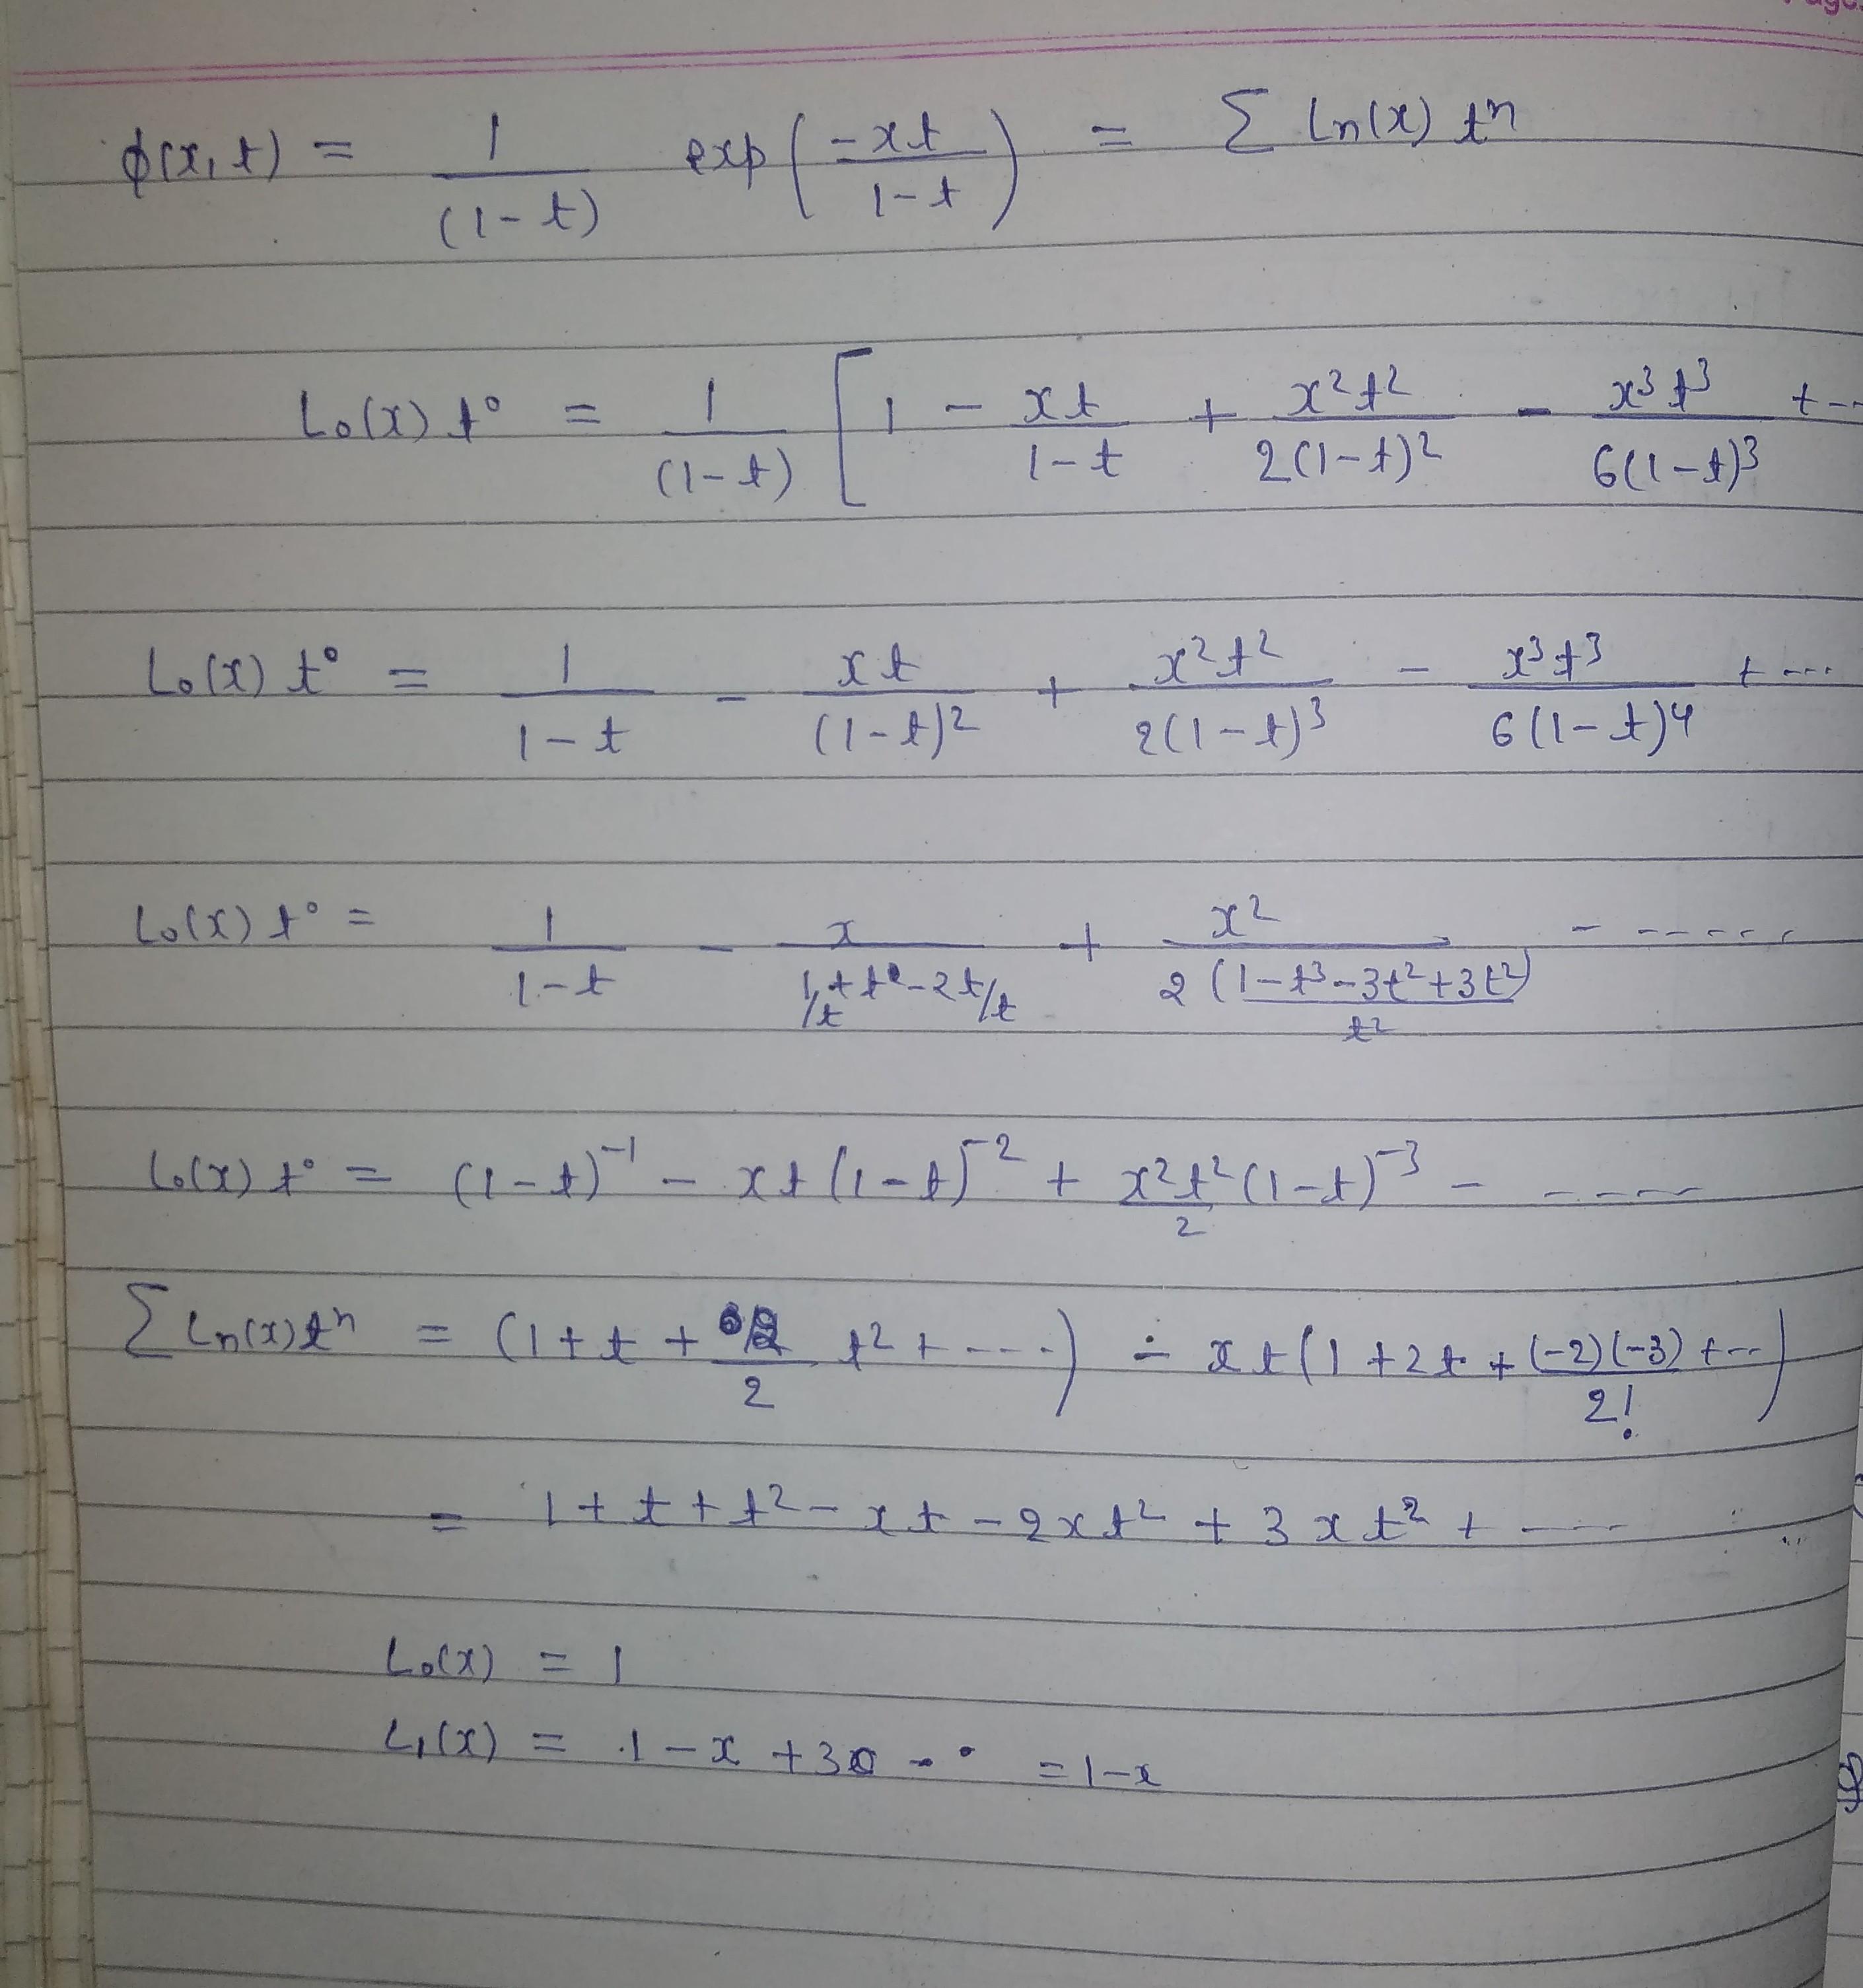 Page
ϕ(x,t) = 1/(1-t) exp(-xt/1-t) = Σ Ln(x) tⁿ
L₀(x) t⁰ = 1/(1-t) [1 - xt/1-t + x²t²/2(1-t)² - x³t³/6(1-t)³ + --
L₀(x) t⁰ = 1/1-t - xt/(1-t)² + x²t²/2(1-t)³ - x³t³/6(1-t)⁴ + ---
L₀(x) t⁰ = 1/1-t - x/(1/t + t - 2t/t) + x²/2((1-t³-3t²+3t²)/t²) - -----
L₀(x) t⁰ = (1-t)⁻¹ - xt(1-t)⁻² + x²t²/2 (1-t)⁻³ - ----
Σ Ln(x)tⁿ = (1+t+ 2/2 t²+----) - xt(1+2t+(-2)(-3)/2! +--)
= 1+t+t²-xt-2xt²+3xt²+----
L₀(x) = 1
L₁(x) = 1-x+30 - = 1-x